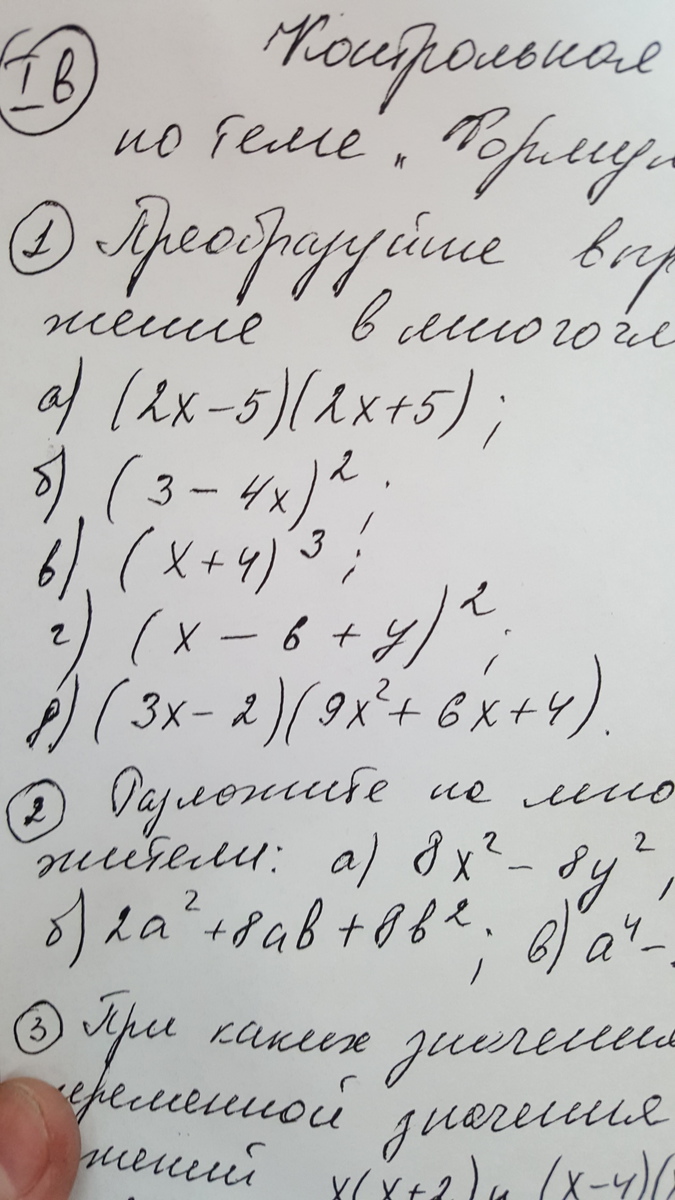 I в
Контрольная
по теме „Формул
① Преобразуйте выр
жение в многочл
а) (2x-5)(2x+5);
б) (3-4x)²;
в) (x+4)³;
г) (x-6+y)²;
д) (3x-2)(9x²+6x+4).
② Разложите на мно
жители: а) 8x²-8y²,
б) 2a²+8ab+8b²; в) a⁴-
③ При каких значения
переменной значения
жений x(x+2) и (x-4)(